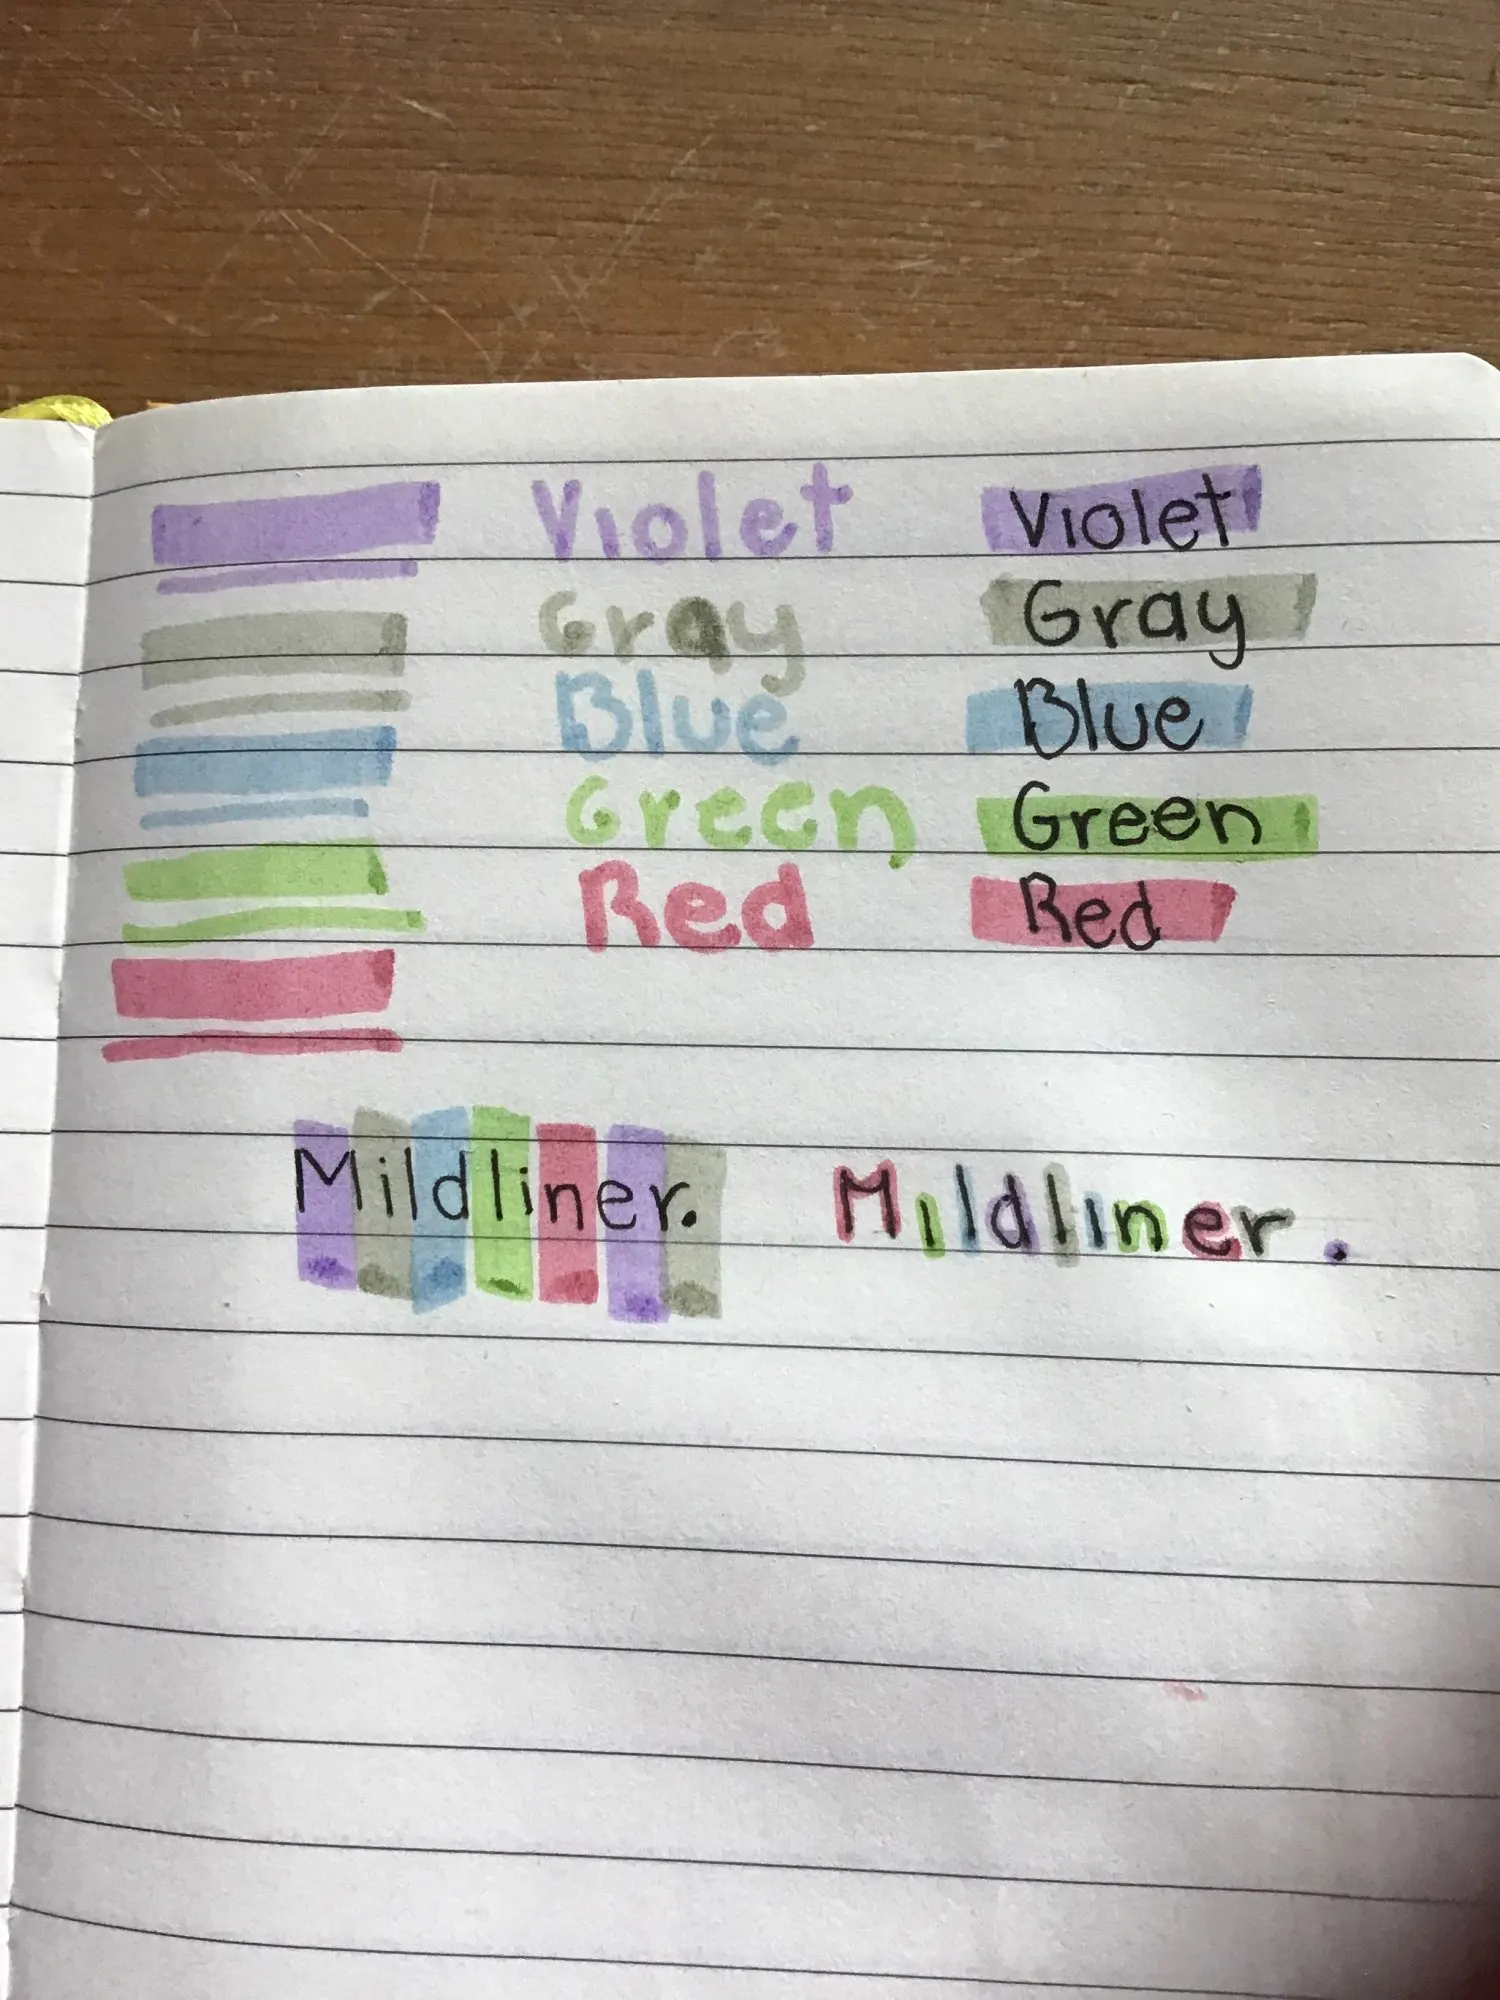 Violet Violet
Gray Gray
Blue Blue
Green Green
Red Red
Mildliner. Mildliner.